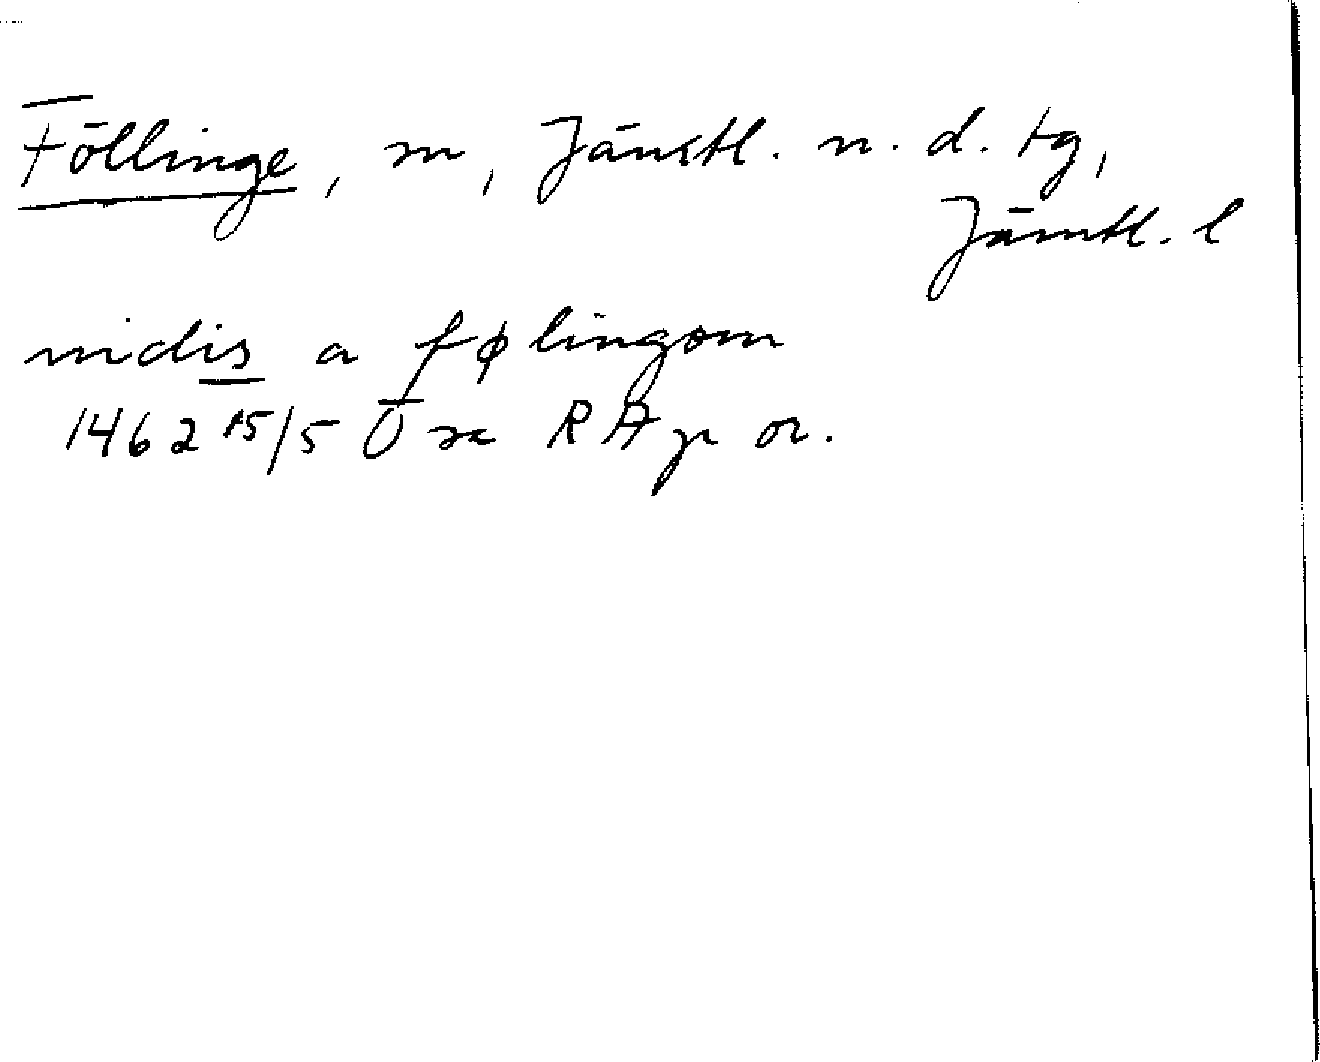 Föllinge, sn, Jämtl. n. d. tg,
Jämtl. l
nidis a følingom
1462 15/5 Ö sn RAp or.